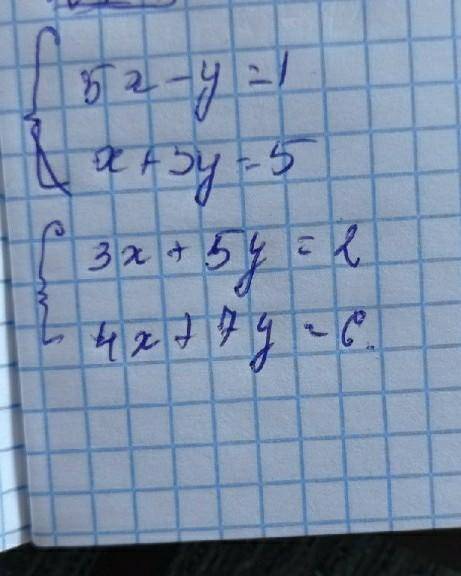 5x - y = 1
x + 5y = 5
3x + 5y = 2
4x + 7y = 6.